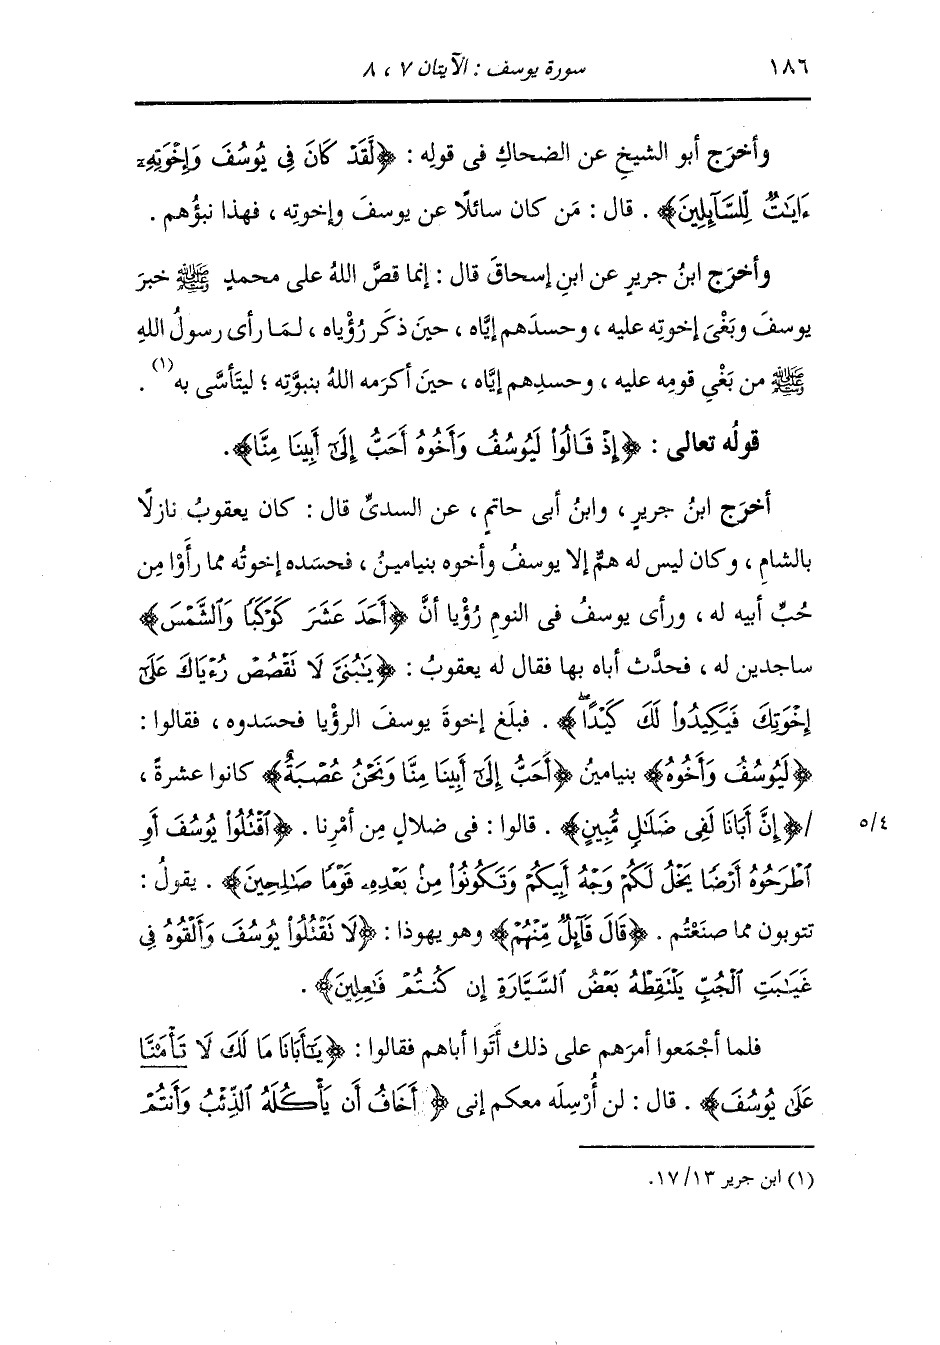 ١٨٦ سورة يوسف : الآيتان ٧ ، ٨
وأخرَج أبو الشيخِ عن الضحاكِ فى قولِه : ﴿لَّقَدْ كَانَ فِى يُوسُفَ وَإِخْوَتِهِۦٓ
ءَايَٰتٌ لِّلسَّآئِلِينَ﴾ . قال : مَن كان سائلًا عن يوسفَ وإخوتِه ، فهذا نبؤُهم .
وأخرَج ابنُ جريرٍ عن ابنِ إسحاقَ قال : إنما قصَّ اللهُ على محمدٍ ﷺ خبرَ
يوسفَ وبَغْىَ إخوتِه عليه ، وحسدَهم إيَّاه ، حينَ ذكَر رُؤْياه ، لمَا رأى رسولُ اللهِ
ﷺ من بَغْىِ قومِه عليه ، وحسدِهم إيَّاه ، حينَ أكرَمه اللهُ بنبوَّتِه ؛ ليتَأسَّى به(١) .
قولُه تعالى : ﴿إِذْ قَالُوا۟ لَيُوسُفُ وَأَخُوهُ أَحَبُّ إِلَىٰٓ أَبِينَا مِنَّا﴾.
أخرَج ابنُ جريرٍ ، وابنُ أبى حاتمٍ ، عن السدىِّ قال : كان يعقوبُ نازلًا
بالشامِ ، وكان ليس له همٌّ إلا يوسفُ وأخوه بنيامينُ ، فحسَده إخوتُه مما رأَوْا مِن
حُبِّ أبيه له ، ورأى يوسفُ فى النومِ رُؤْيا أنَّ ﴿أَحَدَ عَشَرَ كَوْكَبًا وَٱلشَّمْسَ﴾
ساجدين له ، فحدَّث أباه بها فقال له يعقوبُ : ﴿يَٰبُنَىَّ لَا تَقْصُصْ رُءْيَاكَ عَلَىٰٓ
إِخْوَتِكَ فَيَكِيدُوا۟ لَكَ كَيْدًاۖ﴾ . فبلَغ إخوةَ يوسفَ الرؤيا فحسَدوه ، فقالوا :
﴿لَيُوسُفُ وَأَخُوهُ﴾ بنيامينُ ﴿أَحَبُّ إِلَىٰٓ أَبِينَا مِنَّا وَنَحْنُ عُصْبَةٌ﴾ كانوا عشرةً ،
/﴿إِنَّ أَبَانَا لَفِى ضَلَٰلٍ مُّبِينٍ﴾ . قالوا : فى ضلالٍ مِن أمْرِنا . ﴿ٱقْتُلُوا۟ يُوسُفَ أَوِ ٥/٤
ٱطْرَحُوهُ أَرْضًا يَخْلُ لَكُمْ وَجْهُ أَبِيكُمْ وَتَكُونُوا۟ مِنۢ بَعْدِهِۦ قَوْمًا صَٰلِحِينَ﴾ . يقولُ :
تتوبون مما صنَعْتُم . ﴿قَالَ قَآئِلٌ مِّنْهُمْ﴾ وهو يهوذا : ﴿لَا تَقْتُلُوا۟ يُوسُفَ وَأَلْقُوهُ فِى
غَيَٰبَتِ ٱلْجُبِّ يَلْتَقِطْهُ بَعْضُ ٱلسَّيَّارَةِ إِن كُنتُمْ فَٰعِلِينَ﴾ .
فلما أجْمَعوا أمرَهم على ذلك أتَوا أباهم فقالوا : ﴿يَٰٓأَبَانَا مَا لَكَ لَا تَأْمَ۫نَّا
عَلَىٰ يُوسُفَ﴾ . قال : لن أُرْسِلَه معكم إنى ﴿ أَخَافُ أَن يَأْكُلَهُ ٱلذِّئْبُ وَأَنتُمْ
(١) ابن جرير ١٣/ ١٧.